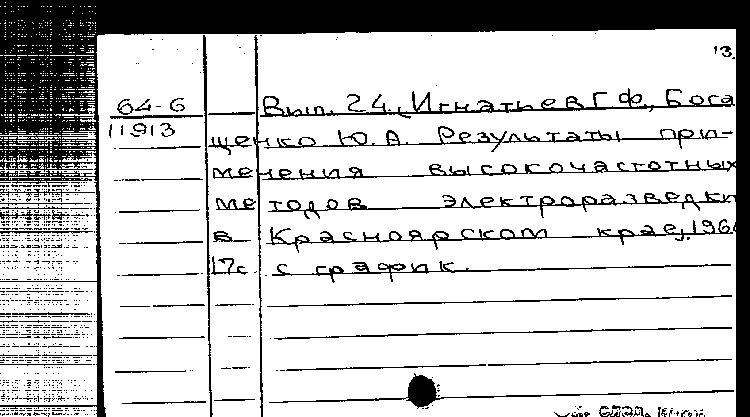 13.
64-6
11913
Вып. 24. Игнатьев Г.Ф., Бога
щенко Ю.А. Результаты при-
менения высокочастотных
методов электроразведки
в Красноярском крае, 196
17с. с график.